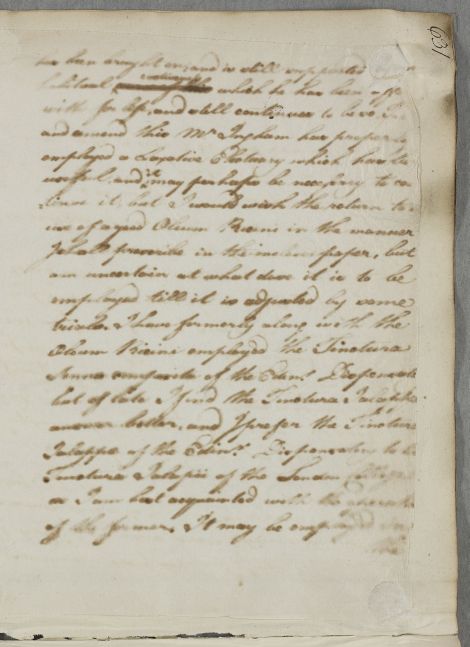 631
has been brought on, and is still supported
habitual which he has been
with for life, and still continues to be so. To
and amend this Mr Ingham has properly
employed a Laxative Electuary which has been
useful, and it may perhaps be necessary to con
tinue it, but I would wish the return to
use of a good Oleum Ricini in the manner
I shall prescribe in the inclosed paper, but
am uncertain at what dose it is to be
employed till it is adjusted by some
trials. I have formerly along with the
Oleum Ricini employed the Tinctura
Senna composita of the Edinr Dispensat
but of late I find the Tinctura Jalappa
answer better, and I prefer the Tinctura
Jalappa of the Edinr Dispensatory to the
Tinctura Jalapii of the London
as I am best acquainted with the
of the former. It may be employed